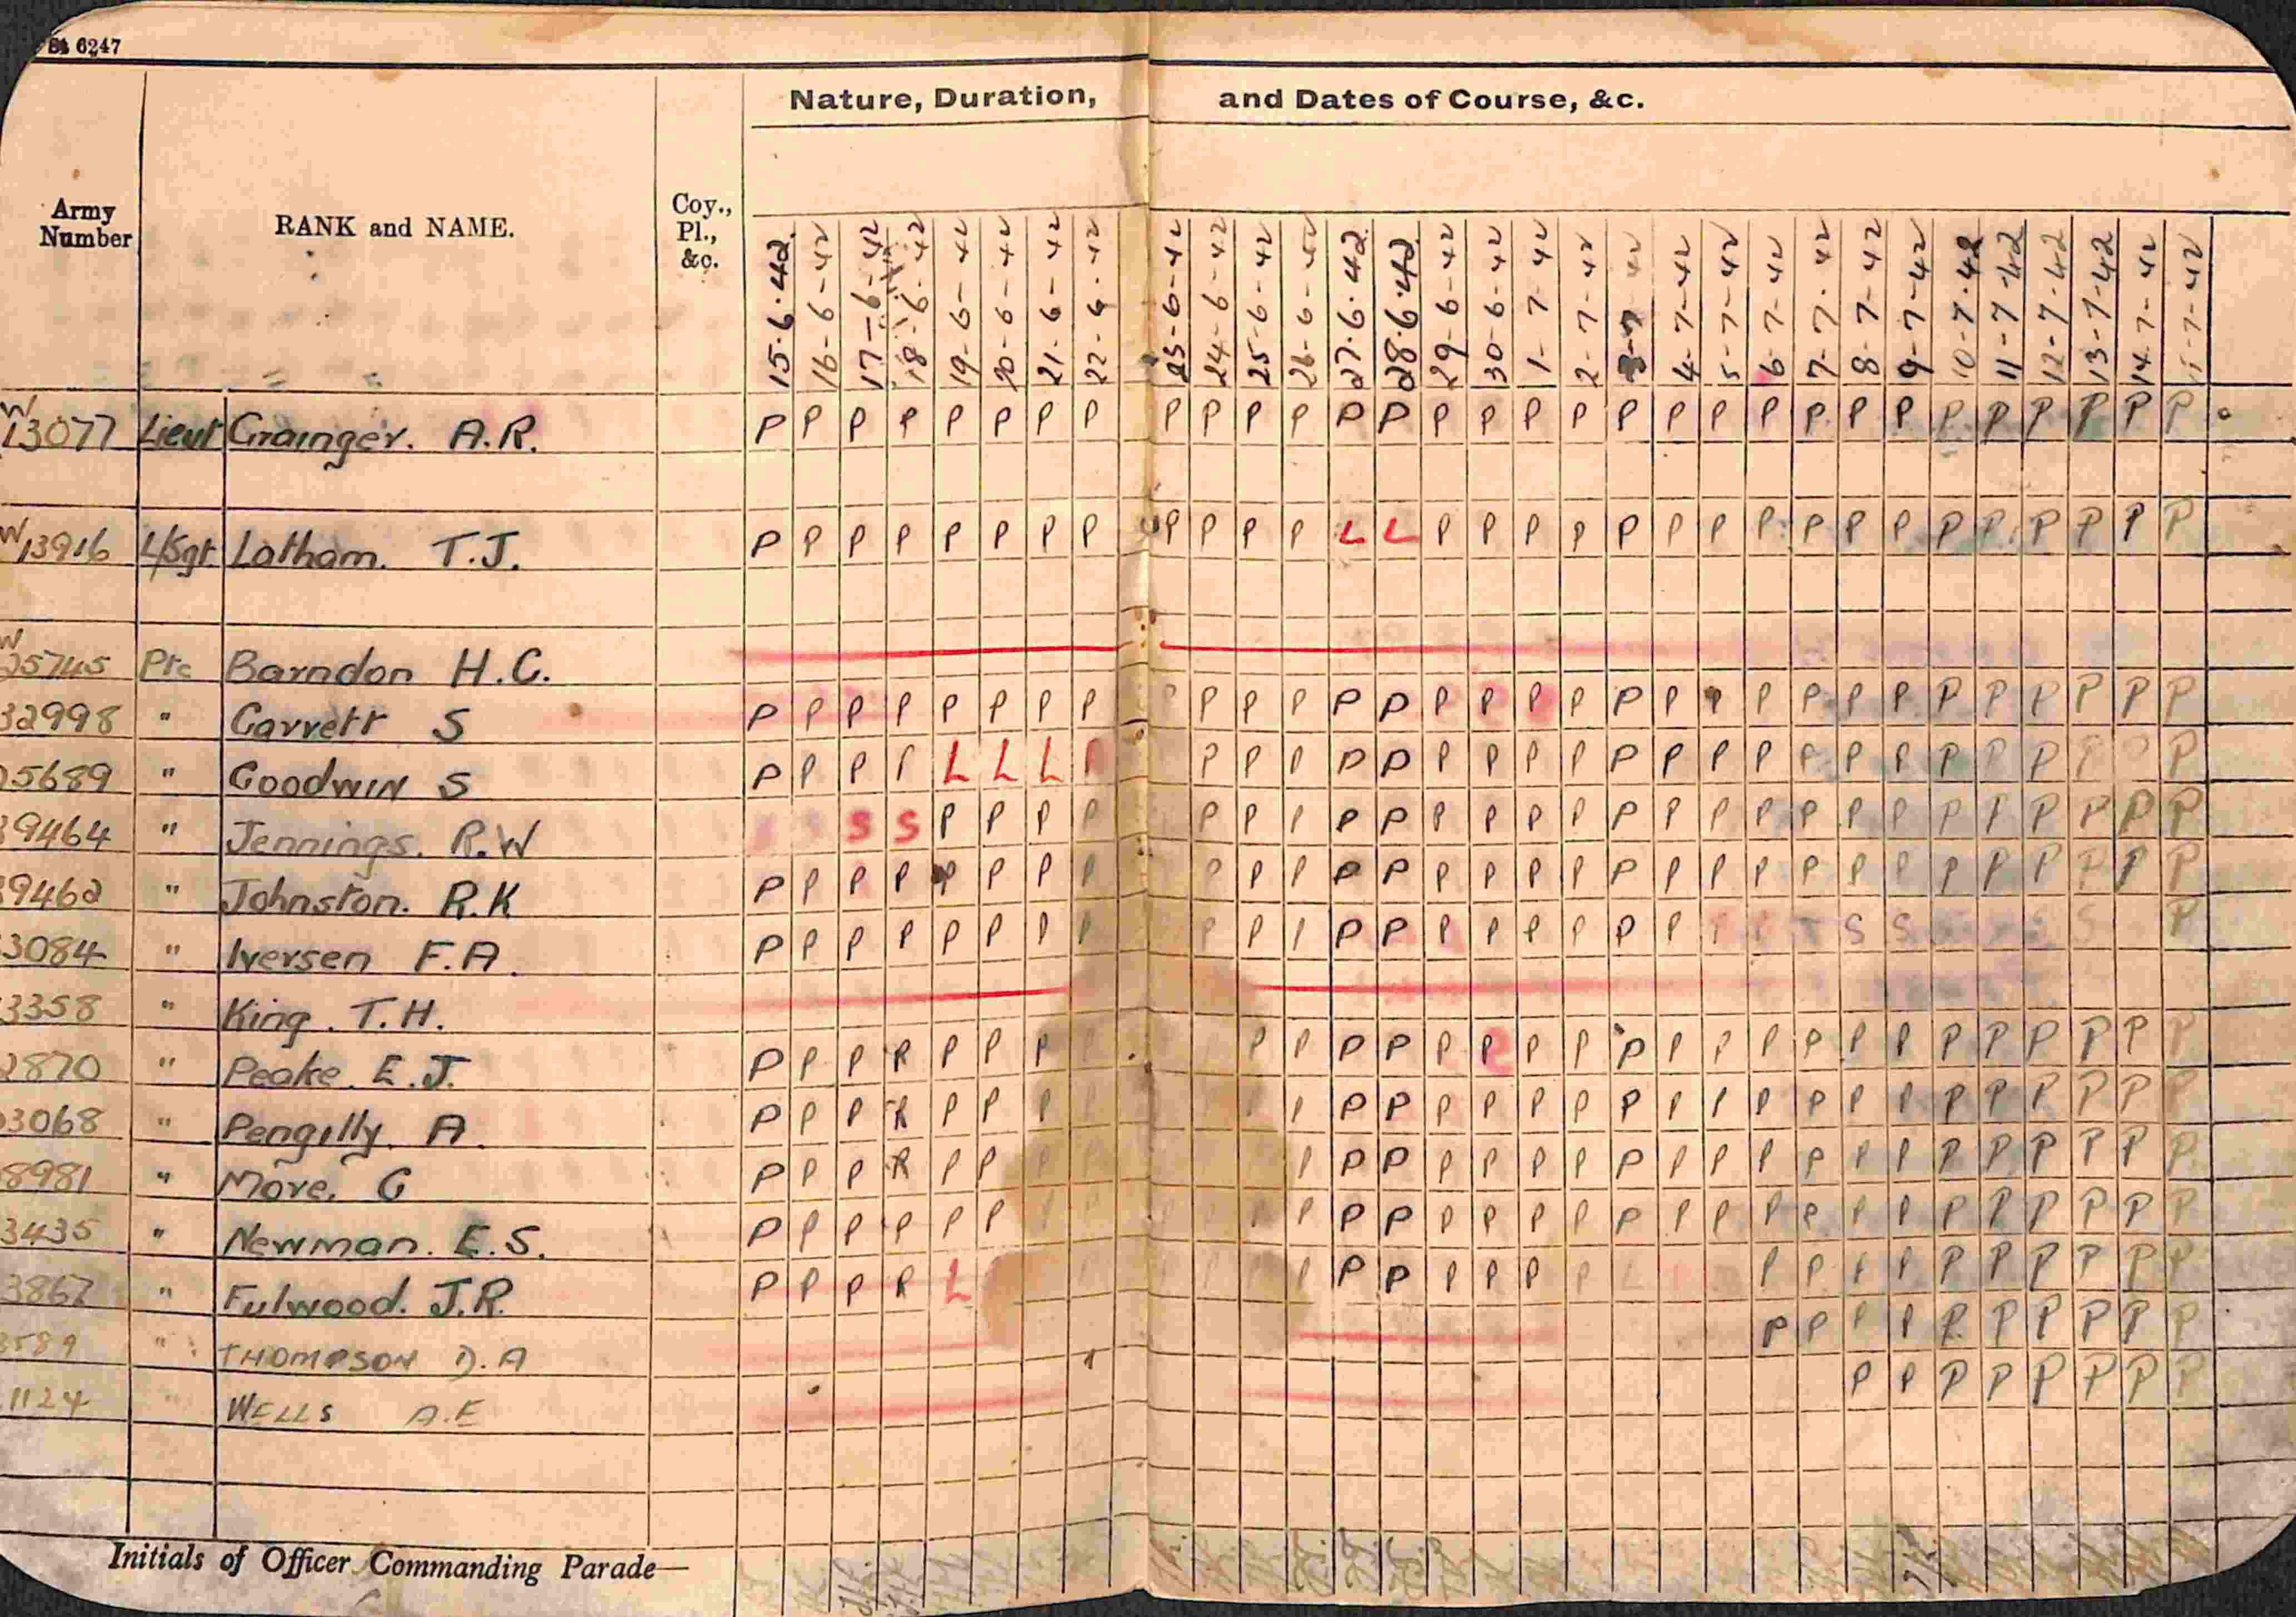 6247
Nature, Duration, and Dates of Course, &c.
Army Number RANK and NAME. Coy., Pl., &c.
15.6.42. 16-6-42 17-6-42 18-6-42 19-6-42 20-6-42 21-6-42 22-6-42 23-6-42 24-6-42 25-6-42 26-6-42 27.6.42 28.6.42 29-6-42 30-6-42 1-7-42 2-7-42 3-7-42 4-7-42 5-7-42 6-7-42 7-7-42 8-7-42 9-7-42 10-7-42 11-7-42 12-7-42 13-7-42 14-7-42 15-7-42
W 13077 Lieut Grainger. A.R. P P P P P P P P P P P P P P P P P P P P P P P P P P P P P P P
W 13916 L/Sgt Latham. T.J. P P P P P P P P P P P P L L P P P P P P P P P P P P P P P P P
W 25745 Pte Barndon H.C.
32998 " Garrett S P P P P P P P P P P P P P P P P P P P P P P P P P P P P P P P
5689 " Goodwin S P P P P L L L P P P P P P P P P P P P P P P P P P P P P P
9464 " Jennings. R.W S S P P P P P P P P P P P P P P P P P P P P P P P P P P
9462 " Johnston. R.K P P P P P P P P P P P P P P P P P P P P P P P P P P P P P P
3084 " Iversen F.A. P P P P P P P P P P P P P P P P P P P S S S P
3358 " King. T.H.
2870 " Peake. E.J. P P P R P P P P P P P P P P P P P P P P P P P P P P P P
3068 " Pengilly. A. P P P R P P P P P P P P P P P P P P P P P P P P P P P
8981 " More. G P P P R P P P P P P P P P P P P P P P P P P P P P P
3435 " Newman. E.S. P P P P P P P P P P P P P P P P P P P P P P P P P P
3867 " Fulwood. J.R. P P P R L P P P P P P P P P P P P P P P P P
3589 " THOMPSON D.A P P P P P P P P P P
1124 " WELLS A.E P P P P P P P P
Initials of Officer Commanding Parade—